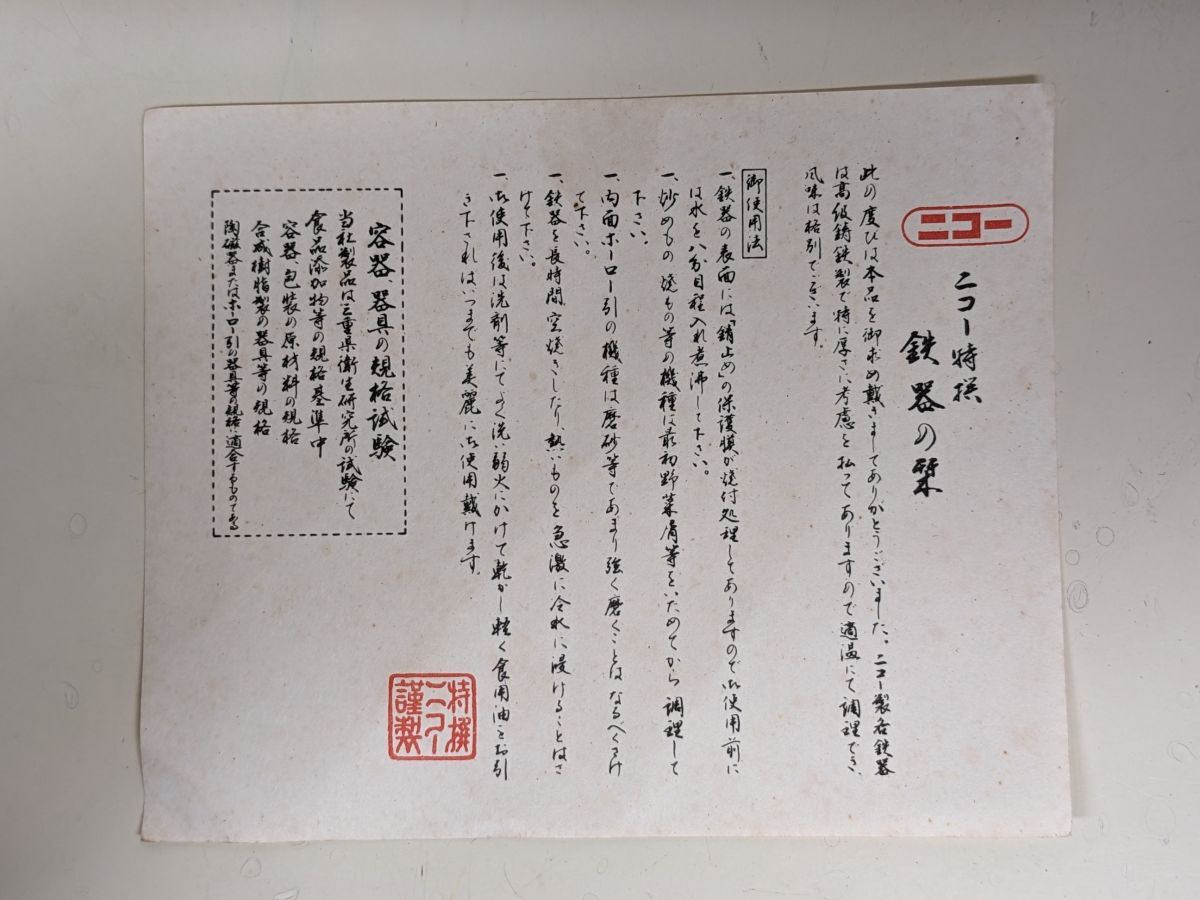 ニコー
ニコー特撰
鉄器の栞
此の度びは本品を御求め戴きましてありがとうございました。ニコー製各鉄器
は高級鋳鉄製で特に厚さに考慮を払ってありますので適温にて調理でき、
風味は格別でございます。
御使用法
一、鉄器の表面には「錆止め」の保護膜が焼付処理してありますので御使用前に
は水を八分目程入れ煮沸して下さい。
一、炒めもの焼もの等の機種は最初野菜屑等をいためてから調理して
下さい。
一、内面ホーロー引の機種は磨砂等であまり強く磨くことはなるべくさけ
て下さい。
一、鉄器を長時間空焼きしたり、熱いものを急激に冷水に浸けることはさ
けて下さい。
一、御使用後は洗剤等にてよく洗い弱火にかけて乾かし軽く食用油をお引
き下されば、いつまでも美麗に御使用戴けます。
容器、器具の規格試験
当社製品は三重県衛生研究所の試験にて
食品添加物等の規格基準中
容器、包装の原材料の規格
合成樹脂製の器具等の規格
陶磁器またはホーロー引の器具等の規格に適合するものである
特撰
ニコー
謹製